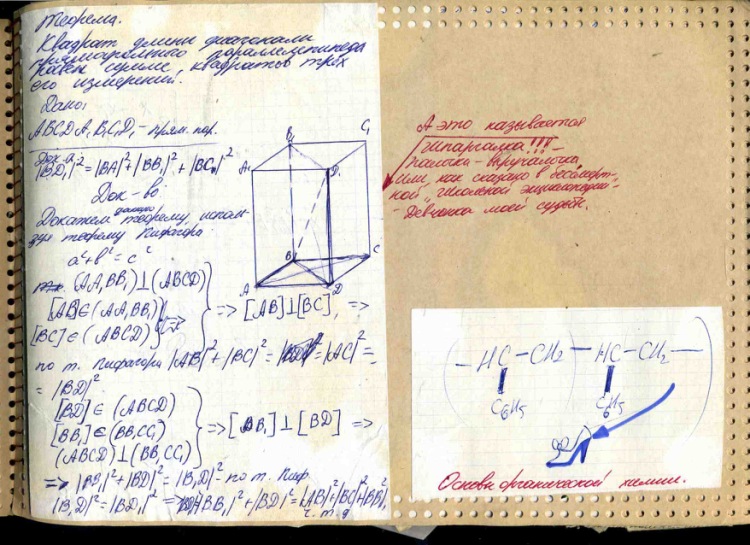 Теорема.
Квадрат длины диагонали
прямоугольного параллелепипеда
равен сумме квадратов трёх
его измерений.
Дано:
ABCDA₁B₁C₁D₁ - прям. пар.
Док-ть
|BD₁|² = |BA|² + |BB₁|² + |BC|²
Док-во
Докажем данную теорему, исполь-
зуя теорему Пифагора
a² + b² = c²
(AA₁BB₁) ⊥ (ABCD)
[AB] ∈ (AA₁BB₁)
[BC] ∈ (ABCD)
=> [AB] ⊥ [BC], =>
по т. Пифагора |AB|² + |BC|² = |AC|² =
= |BD|²
[BD] ∈ (ABCD)
[BB₁] ∈ (BB₁CC₁)
(ABCD) ⊥ (BB₁CC₁)
=> [BB₁] ⊥ [BD] =>
=> |BB₁|² + |BD|² = |B₁D|² - по т. Пиф.
|B₁D|² = |BD₁|² => |BB₁|² + |BD|² = |AB|² + |BC|² + |BB₁|²
ч. т. д.
B₁
C₁
A₁
D₁
B
C
A
D
А это называется
Шпаргалка!!! -
палочка - выручалочка,
Или как сказано в бессмерт-
ной "Школьной энциклопедии" -
- Девчонка моей судьбы.
- HC - CH₂ - HC - CH₂ -
C₆H₅ C₆H₅
Основы органической химии.